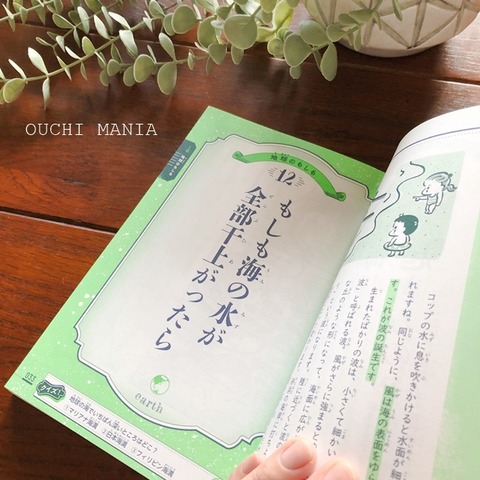 OUCHI MANIA
地球のもしも
12
もしも海の水が
全部干上がったら
earth
クイズ!
地球の海でいちばん深いところはどこ?
①マリアナ海溝 ②日本海溝 ③フィリピン海溝
コップの水に息を吹きかけると水面が
れますね。同じように、風は海の表面をゆら
す。これが波の誕生です。
生まれたばかりの波は、小さくて細かい
波」と呼ばれる波。風がさらに強まるとい